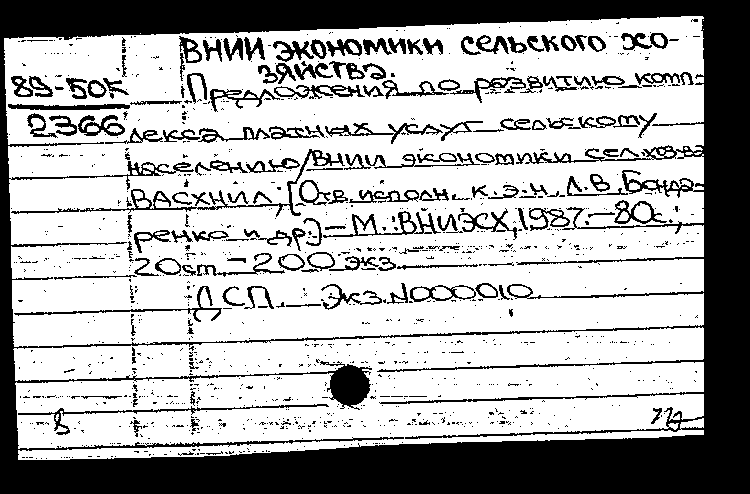 ВНИИ экономики сельского хо-
зяйства.
89-50к
2366
Предложения по развитию комп-
лекса платных услуг сельскому
населению/ВНИИ экономики сел.хоз-ва
ВАСХНИЛ; [Отв. исполн. к.э.н. Л.В. Бонда-
ренко и др.] - М.: ВНИЭСХ, 1987. - 80с.;
20см - 200 экз.
ДСП. Экз. N000010.
8